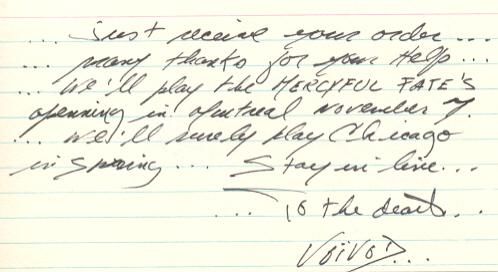 ... Just receive your order ...
... many thanks for your Help ...
... we'll play the MERCYFUL FATE'S
openning in Montreal november 7.
... we'll surely play Chicago
in Spring ... Stay in line ...
... To the death ..
VOiVOD ...